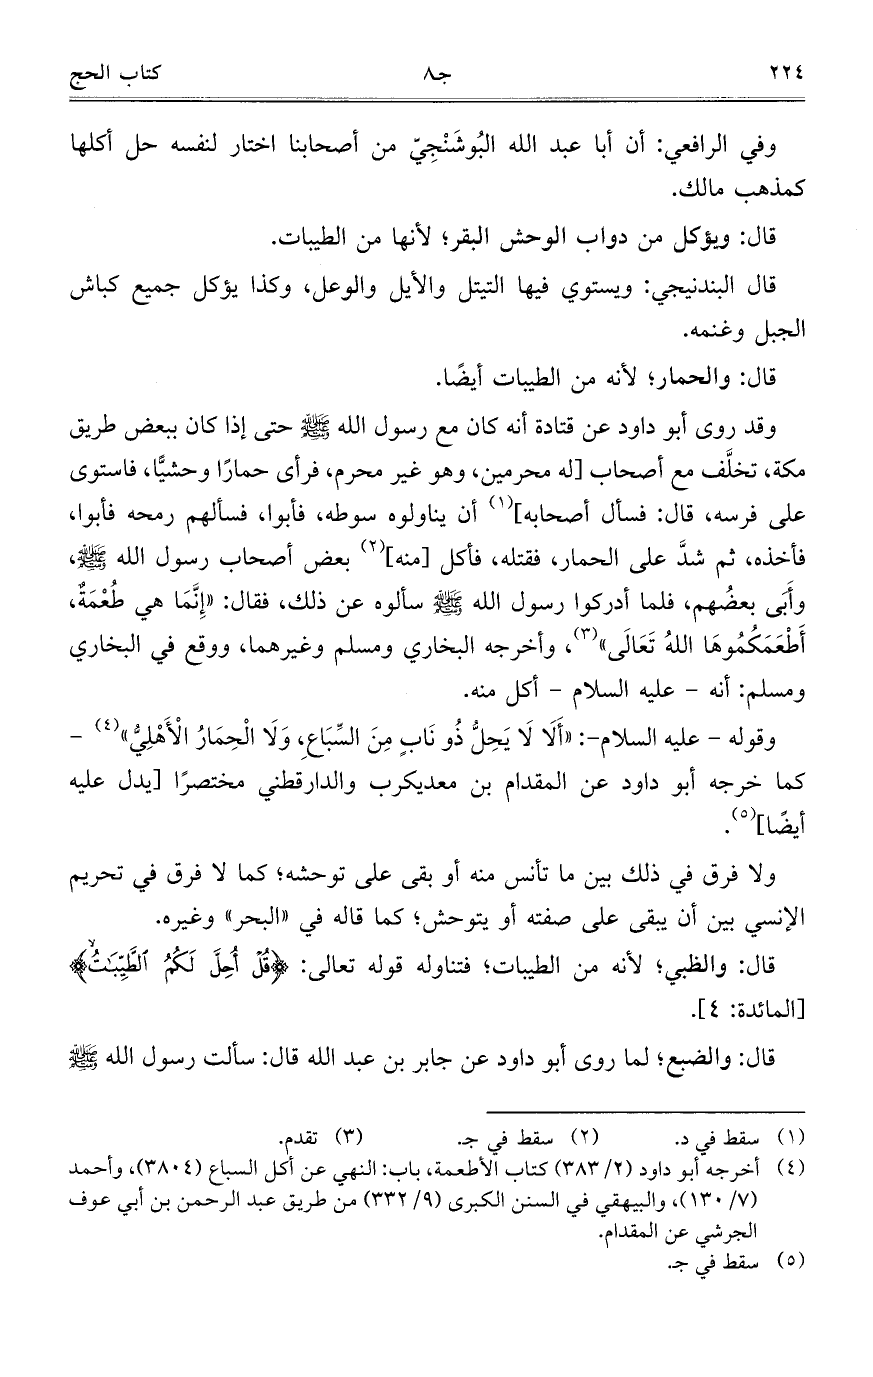 ٢٢٤ جـ٨ كتاب الحج
وفي الرافعي: أن أبا عبد الله البُوشَنْجِيّ من أصحابنا اختار لنفسه حل أكلها
كمذهب مالك.
قال: ويؤكل من دواب الوحش البقر؛ لأنها من الطيبات.
قال البندنيجي: ويستوي فيها التيتل والأيل والوعل، وكذا يؤكل جميع كباش
الجبل وغنمه.
قال: والحمار؛ لأنه من الطيبات أيضًا.
وقد روى أبو داود عن قتادة أنه كان مع رسول الله ﷺ حتى إذا كان ببعض طريق
مكة، تخلَّف مع أصحاب [له محرمين، وهو غير محرم، فرأى حمارًا وحشيًّا، فاستوى
على فرسه، قال: فسأل أصحابه](١) أن يناولوه سوطه، فأبوا، فسألهم رمحه فأبوا،
فأخذه، ثم شدَّ على الحمار، فقتله، فأكل [منه](٢) بعض أصحاب رسول الله ﷺ،
وأَبَى بعضُهم، فلما أدركوا رسول الله ﷺ سألوه عن ذلك، فقال: «إِنَّمَا هي طُعْمَةٌ،
أَطْعَمَكُمُوهَا اللهُ تَعَالَى»(٣)، وأخرجه البخاري ومسلم وغيرهما، ووقع في البخاري
ومسلم: أنه - عليه السلام - أكل منه.
وقوله - عليه السلام-: «أَلَا لَا يَحِلُّ ذُو نَابٍ مِنَ السِّبَاعِ، وَلَا الْحِمَارُ الْأَهْلِيُّ»(٤) -
كما خرجه أبو داود عن المقدام بن معديكرب والدارقطني مختصرًا [يدل عليه
أيضًا](٥).
ولا فرق في ذلك بين ما تأنس منه أو بقى على توحشه؛ كما لا فرق في تحريم
الإنسي بين أن يبقى على صفته أو يتوحش؛ كما قاله في «البحر» وغيره.
قال: والظبي؛ لأنه من الطيبات؛ فتناوله قوله تعالى: ﴿قُلْ أُحِلَّ لَكُمُ ٱلطَّيِّبَـٰتُۙ﴾
[المائدة: ٤].
قال: والضبع؛ لما روى أبو داود عن جابر بن عبد الله قال: سألت رسول الله ﷺ
(١) سقط في د. (٢) سقط في جـ. (٣) تقدم.
(٤) أخرجه أبو داود (٢/ ٣٨٣) كتاب الأطعمة، باب: النهي عن أكل السباع (٣٨٠٤)، وأحمد
(٧/ ١٣٠)، والبيهقي في السنن الكبرى (٩/ ٣٣٢) من طريق عبد الرحمن بن أبي عوف
الجرشي عن المقدام.
(٥) سقط في جـ.